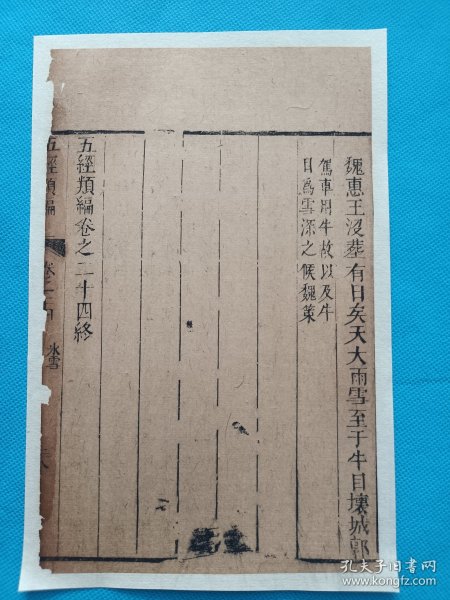 魏惠王沒葬有日矣天大雨雪至于牛目壞城郭
駕車用牛故以及牛
目爲雪深之候魏策
五經類編卷之二十四終
五經類編
卷之
冰雪
孔夫子旧书网
www.kongfz.com